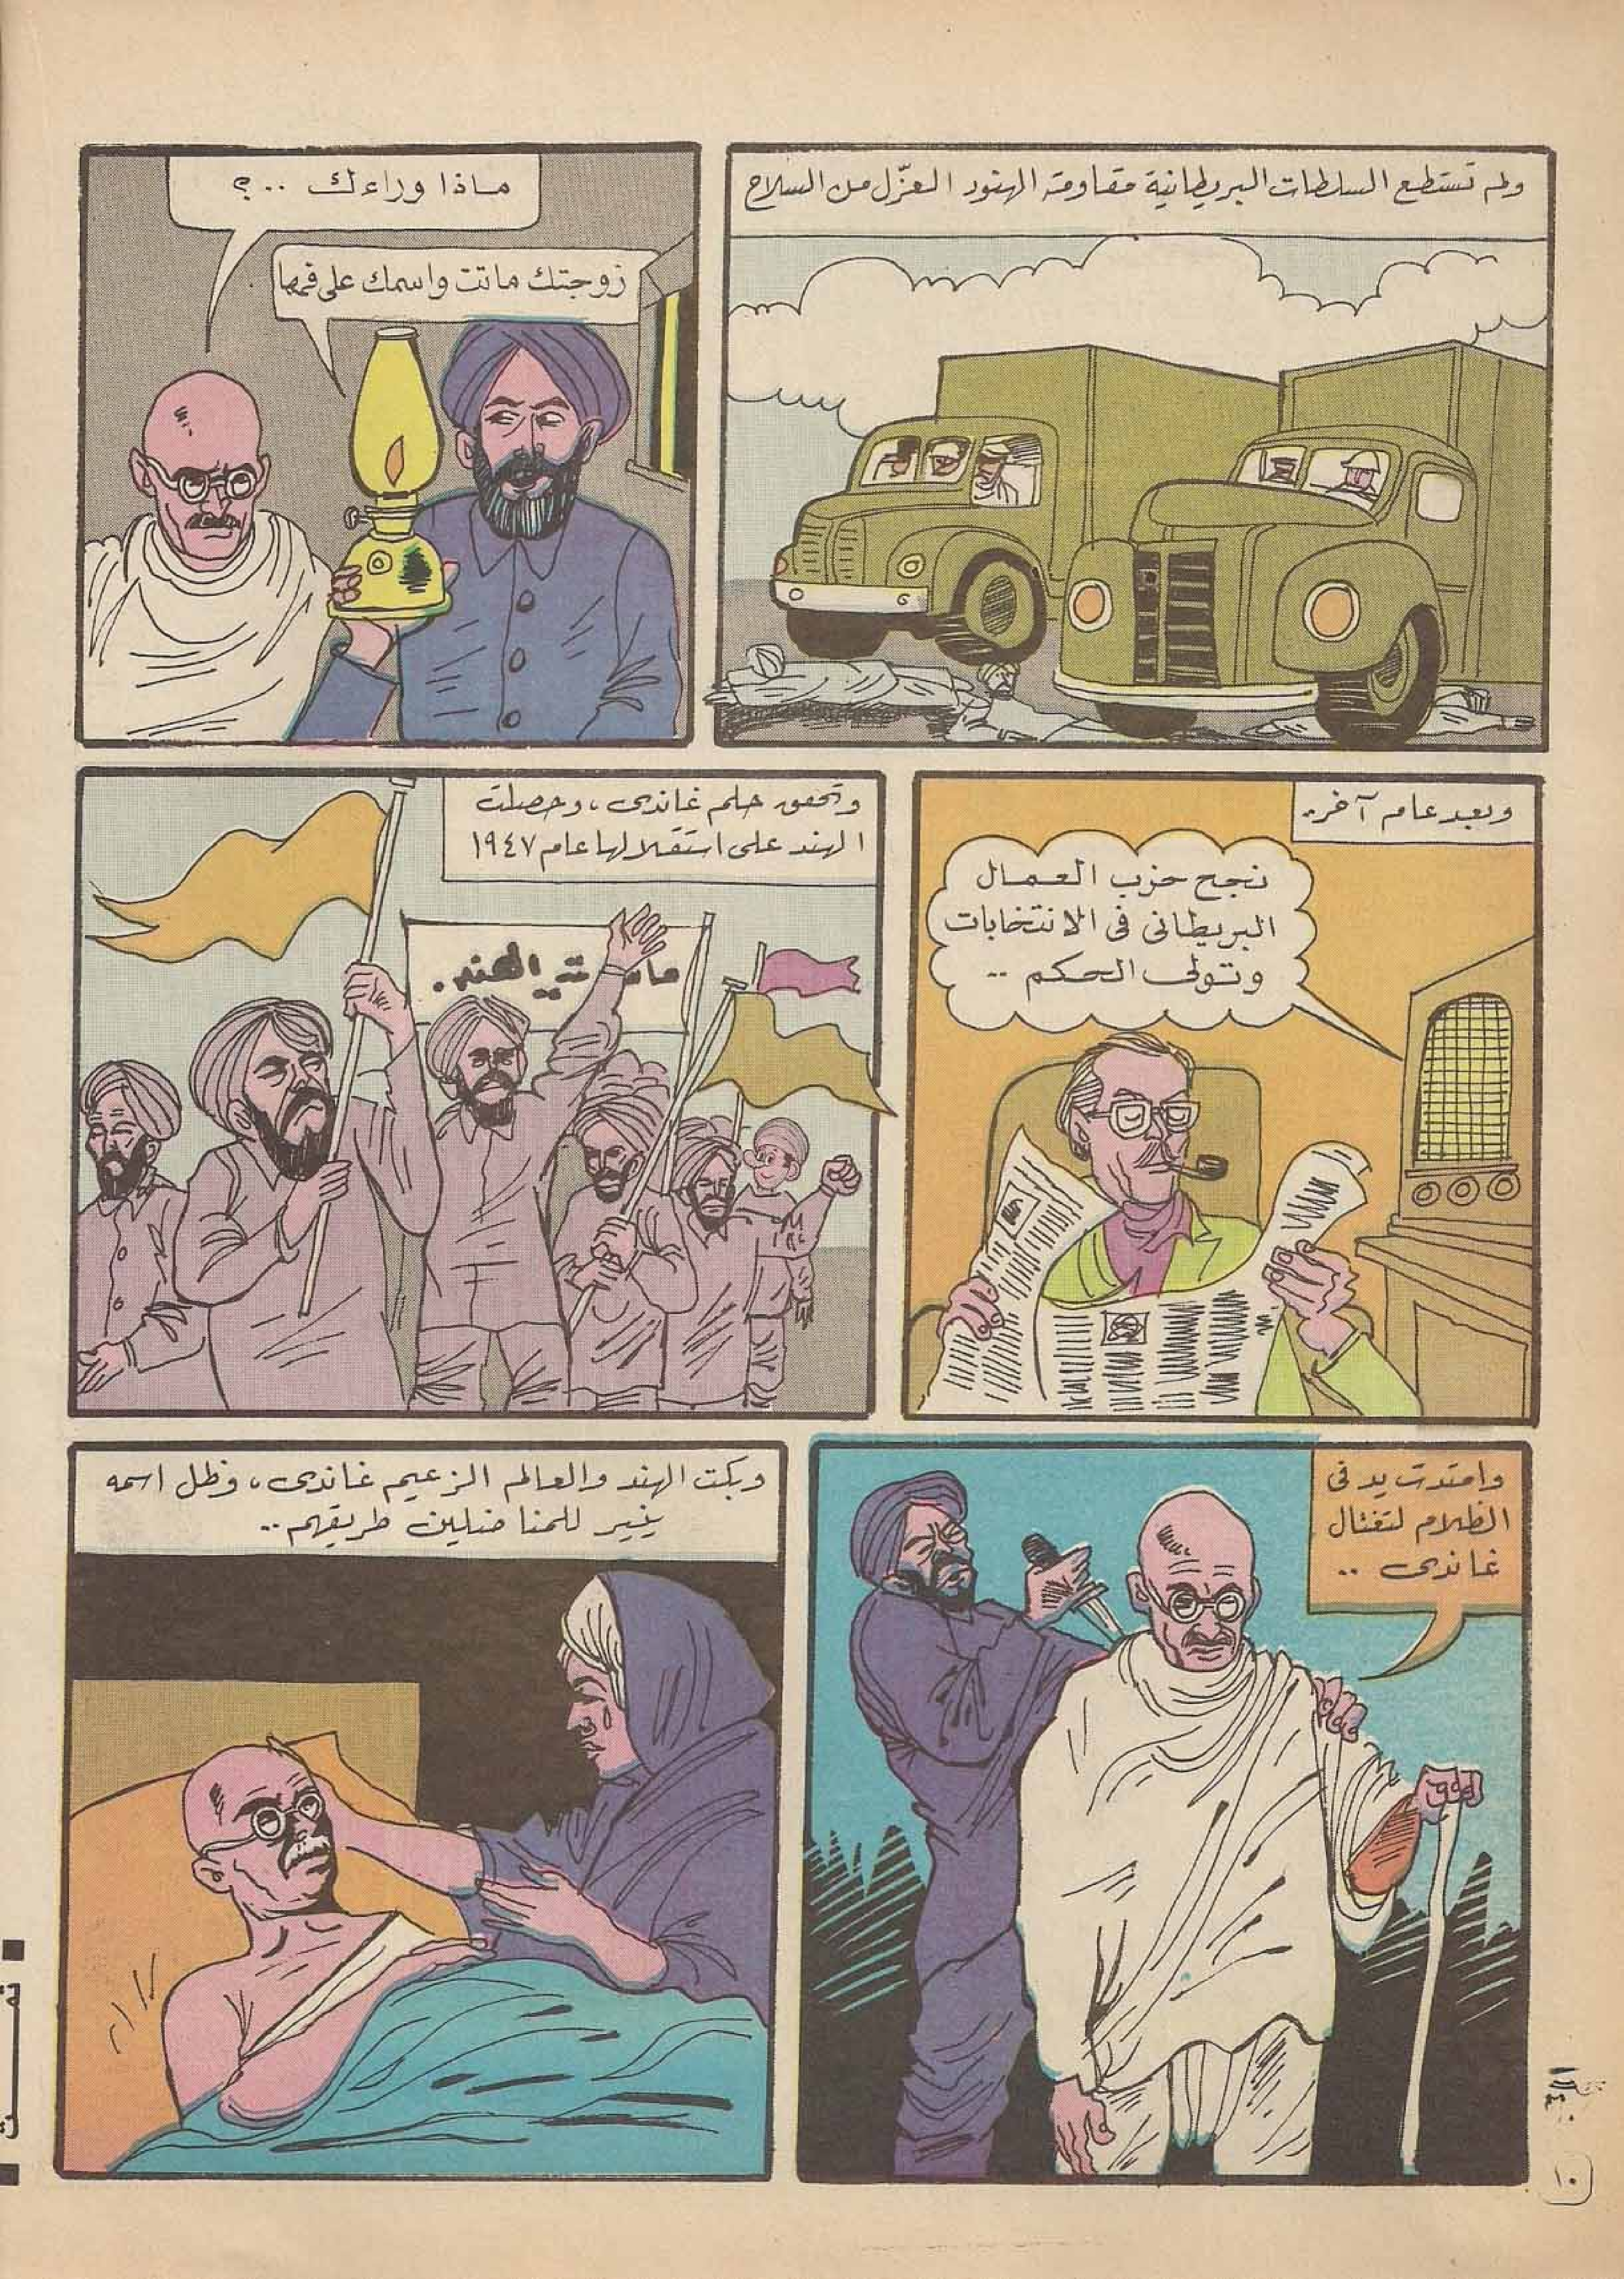 ولم تستطع السلطات البريطانية مقاومة الهنود العزّل من السلاح
ماذا وراءك ..؟
زوجتك ماتت واسمك على فمها
وبعد عام آخر..
نجح حزب العمال
البريطانى فى الانتخابات
وتولى الحكم ..
وتحقق حلم غاندى، وحصلت
الهند على استقلالها عام ١٩٤٧
الهند.
وامتدت يد فى
الظلام لتغتال
غاندى ..
وبكت الهند والعالم الزعيم غاندى، وظل اسمه
ينير للمناضلين طريقهم..
تمت
١٠